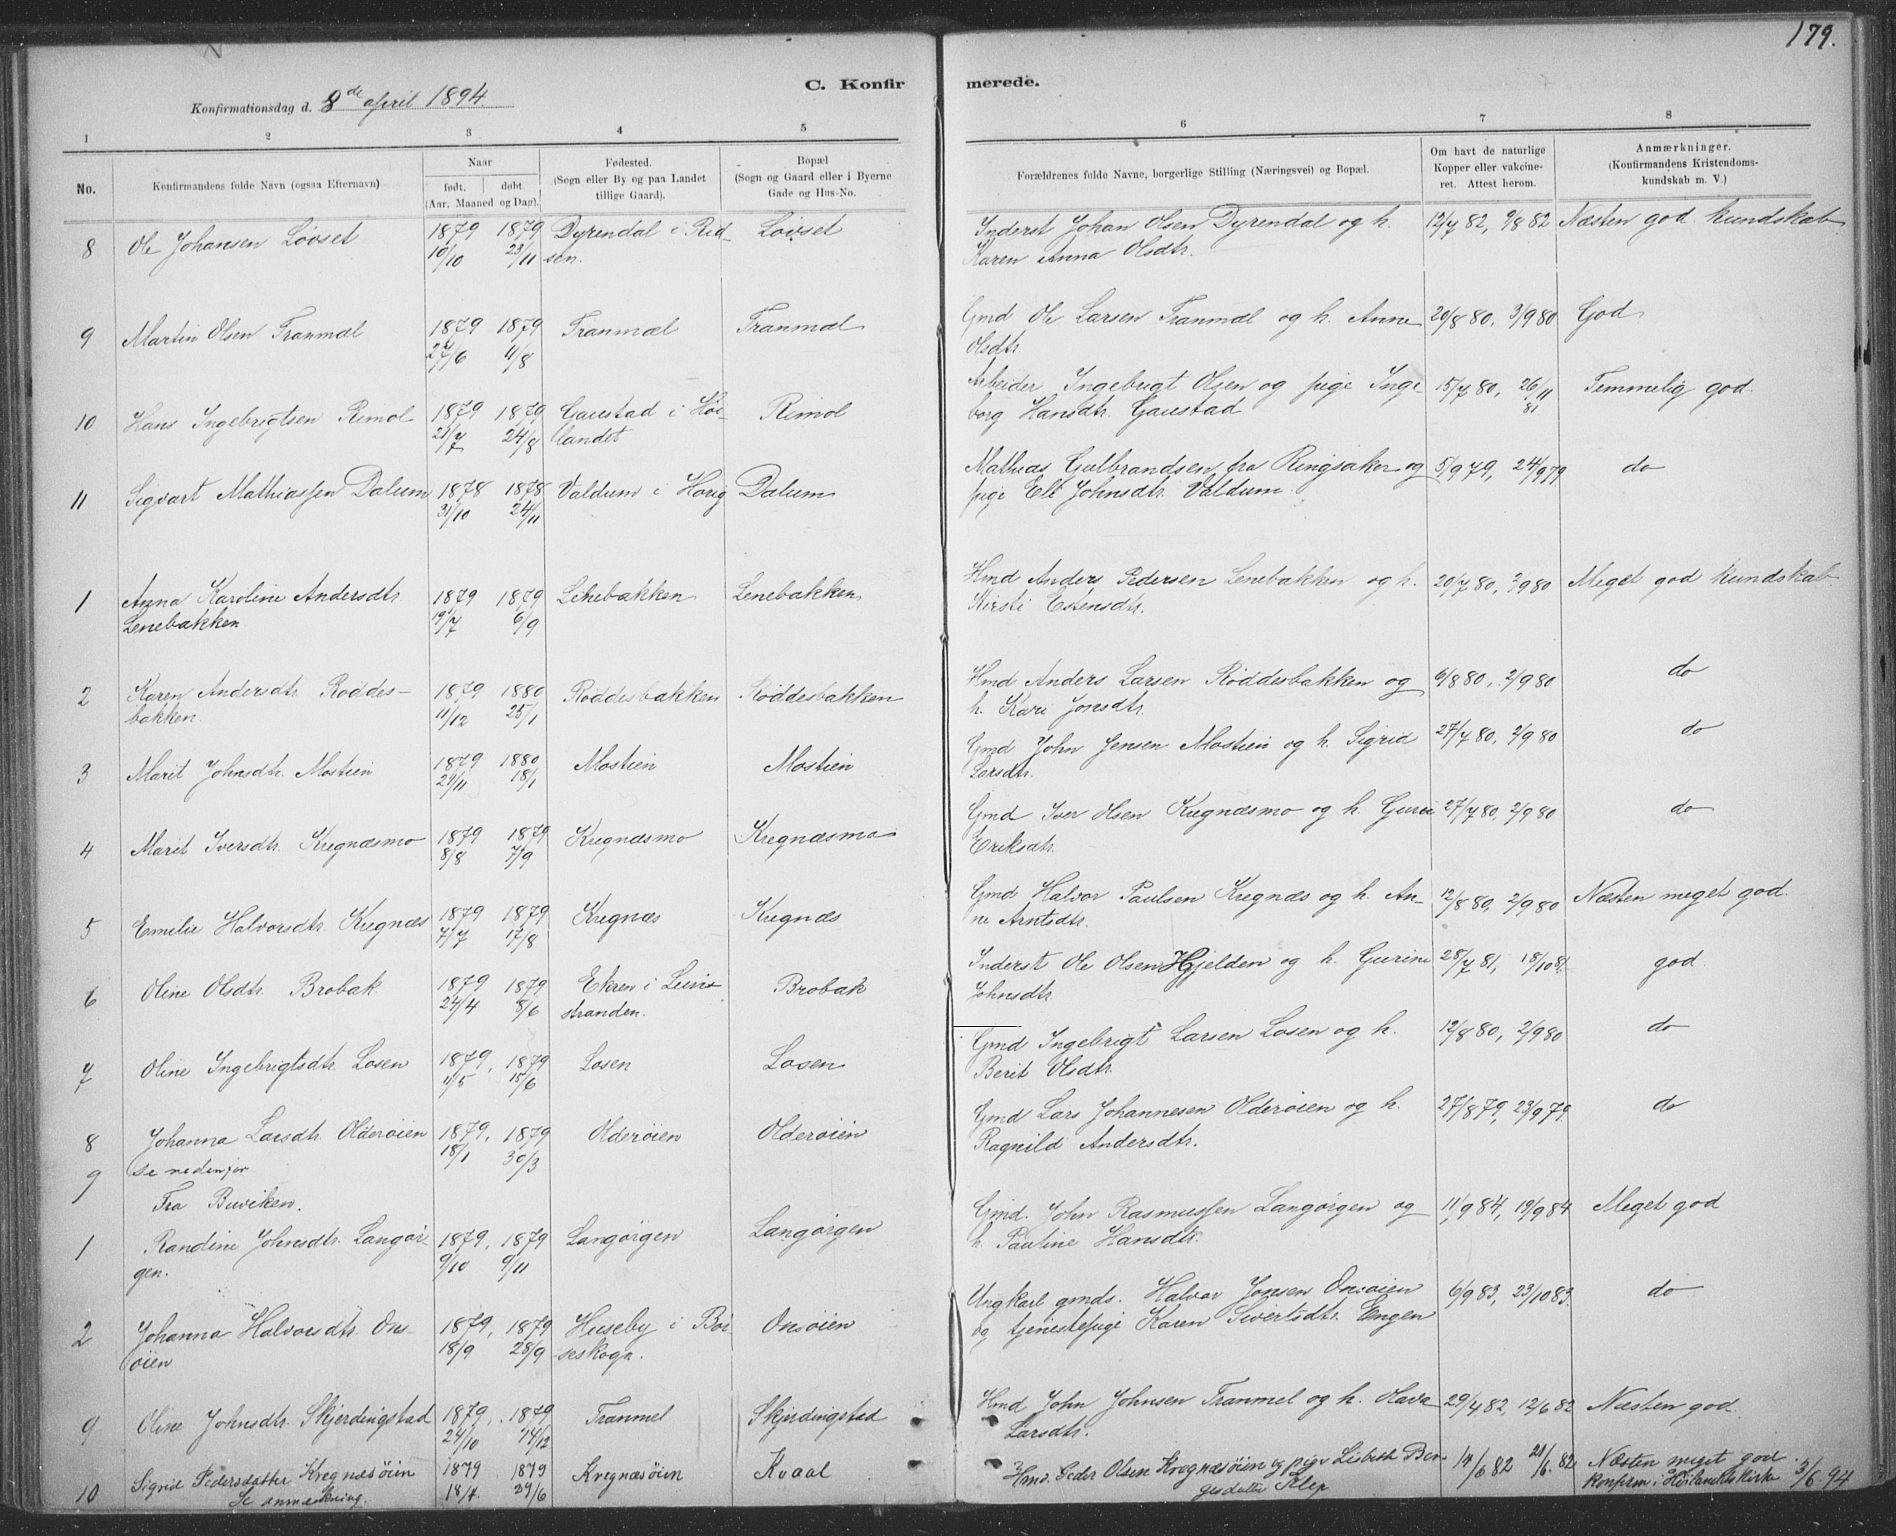 179.
C. Konfirmerede.
Konfirmationsdag d. 8de april 1894
1 2 3 4 5 6 7 8
No. | Konfirmandens fulde Navn (ogsaa Efternavn) | Naar født. døbt. (Aar, Maaned og Dag). | Fødested. (Sogn eller By og paa Landet tillige Gaard). | Bopæl (Sogn og Gaard eller i Byerne Gade og Hus-No. | Forældrenes fulde Navne, borgerlige Stilling (Næringsvei) og Bopæl. | Om havt de naturlige Kopper eller vakcineret. Attest herom. | Anmærkninger. (Konfirmandens Kristendomskundskab m. V.)
8 Ole Johansen Løvset 1879 1879 Dyrendal i Rid- Løvset Inderst Johan Olsen Dyrendal og h. 12/7 82, 9/8 82 Næsten god kundskab
10/10 23/11 sen. Karen Anna Olsdtr.
9 Martin Olsen Tranmæl 1879 1879 Tranmæl Tranmæl Gmd Ole Larsen Tranmæl og h. Anne 20/8 80, 3/9 80 God
27/6 4/8 Olsdtr.
10 Hans Ingebrigtsen Rimol 1879 1879 Gaustad i Høi- Rimol Arbeider Ingebrigt Olsen og pige Inge- 15/7 80, 26/11 81 Temmelig god.
21/7 24/8 landet borg Hansdtr. Gaustad
11 Sigvart Mathiassen Dalum 1878 1878 Valdum i Horig Dalum Mathias Gulbrandsen fra Ringsaker og 5/9 79, 24/9 79 do
31/10 24/11 pige Eli Johnsdtr. Valdum.
1 Anna Karoline Andersdtr. 1879 1879 Lenebakken Lenebakken Hmd Anders Pedersen Lenebakken og h. 20/7 80, 2/9 80 Meget god kundskab
Lenebakken 19/7 6/9 Kirsti Estensdtr.
2 Karen Andersdtr Røddes- 1879 1880 Røddesbakken Røddesbakken Hmd Anders Larsen Røddesbakken og 6/8 80, 2/9 80 do
bakken. 11/12 25/1 h. Kari Jonsdtr.
3 Marit Johnsdtr. Mostien 1879 1880 Mostien Mostien Gmd John Jensen Mostien og h. Sigrid 27/7 80, 2/9 80 do
21/11 18/1 Larsdtr.
4 Marit Iversdtr. Kregnæsmo 1879 1879 Kregnæsmo Kregnæsmo Gmd Iver Olsen Kregnæsmo og h. Guru 27/7 80, 2/9 80 do
8/8 7/9 Eriksdtr.
5 Emelie Halvorsdtr. Kregnæs 1879 1879 Kregnæs Kregnæs Gmd Halvor Paulsen Kregnæs og h. An- 12/8 80, 2/9 80 Næsten meget god.
7/7 17/8 ne Arntsdtr.
6 Oline Olsdtr. Brobak 1879 1879 Ekren i Lein- Brobak Inderst Ole Olsen Hjelden og h. Gurine 28/7 81, 18/10 81 god.
24/4 8/6 stranden. Johnsdtr.
7 Oline Ingebrigtsdtr. Losen 1879, 1879 Losen Losen Gmd Ingebrigt Larsen Losen og h. 12/8 80, 2/9 80 do
4/5 15/6 Berit Olsdtr.
8 Johanna Larsdtr. Olderøien 1879, 1879 Olderøien Olderøien Gmd Lars Johannesen Olderøien og h. 27/8 79, 23/9 79. do
18/1 30/3 Ragnild Andersdtr.
9 se nedenfor
Fra Buviken.
1 Randine Johnsdtr. Langør- 1879, 1879 Langørgen Langørgen Gmd. John Rasmussen Langørgen og 11/9 84, 19/9 84 Meget god
gen. 9/10 9/11 h. Pauline Hansdtr.
2 Johanna Halvorsdtr. Ons- 1879, 1879 Huseby i Bør- Onsøien Ungkarl gmds. Halvor Jonsen Onsøien 6/9 83, 23/10 83. do
øien 18/9 28/9 seskogn. og tjenestepige Karen Sivertsdtr. Engen
9 Oline Johnsdtr. Skjerdingstad 1879, 1879, Tranmel Skjerdingstad Hmd John Johnsen Tranmel og h. Olava 29/4 82, 12/6 82 Næsten god.
24/10 14/12 Larsdtr.
10 Sigrid Pedersdatter Kregnæsøien 1879 1879 Kregnæsøien Kvaal Hmd. Peder Olsen Kregnæsøien og pige Lisbeth Bør- 14/6 82 21/6. 82 Næsten meget god.
Se anmærkning. 18/4. 29/6 gesdatter Klep konfirm i Høilandets kirke 3/6. 94